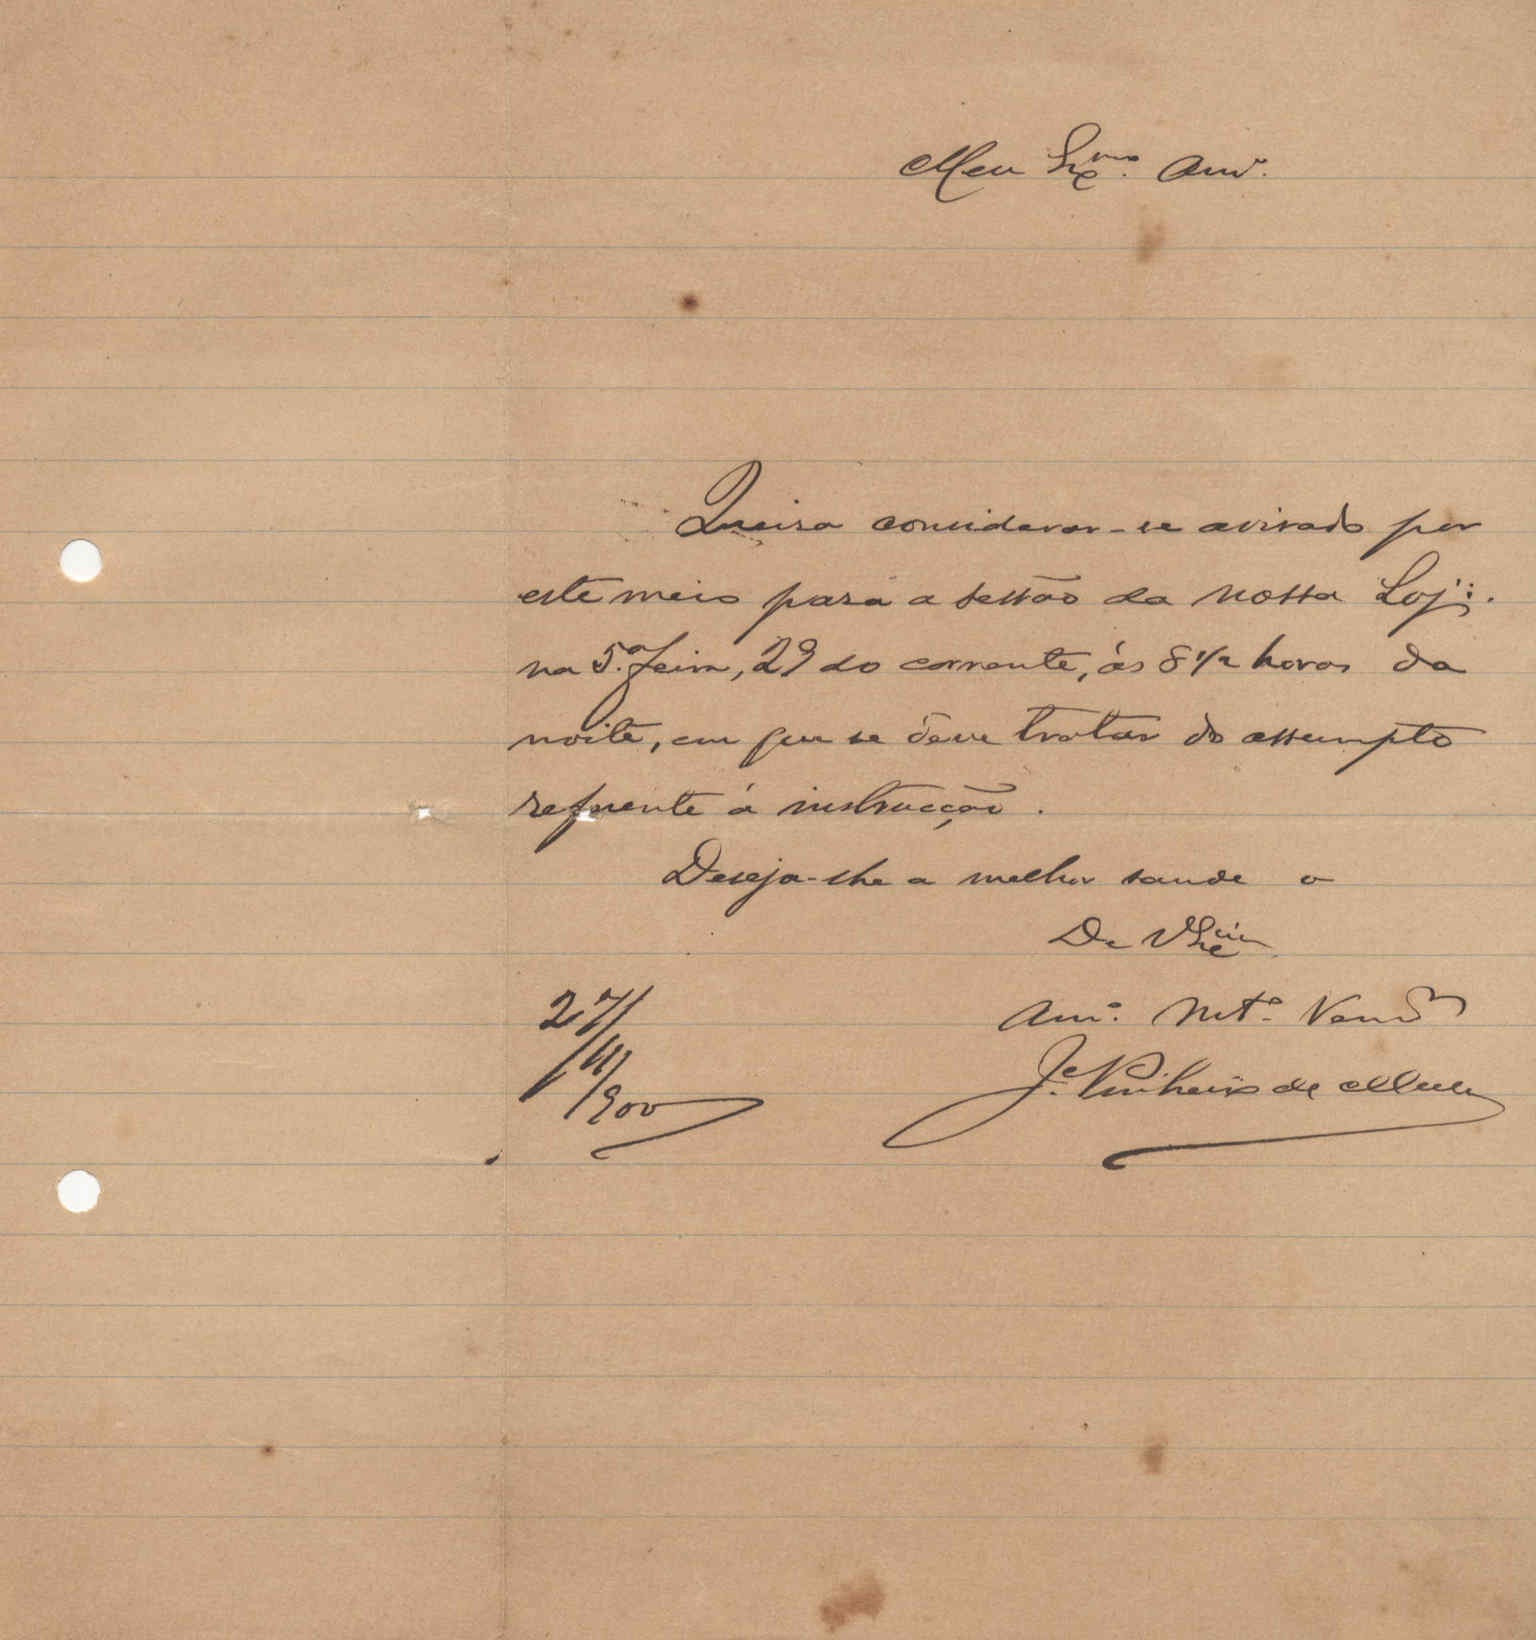 Meu Ex.mo Am.o
Queira considerar-se avisado por
este meio para a sessão da nossa Loj∴
na 5.a feira, 29 do corrente, ás 8 1/2 horas da
noite, em que se deve tratar do assumpto
referente á instrucção.
Deseja-lhe a melhor saude o
De V Ex.cia
Am.o Mt.o Ven.or
J.e Pinheiro de Mello
27/
/III/
/900